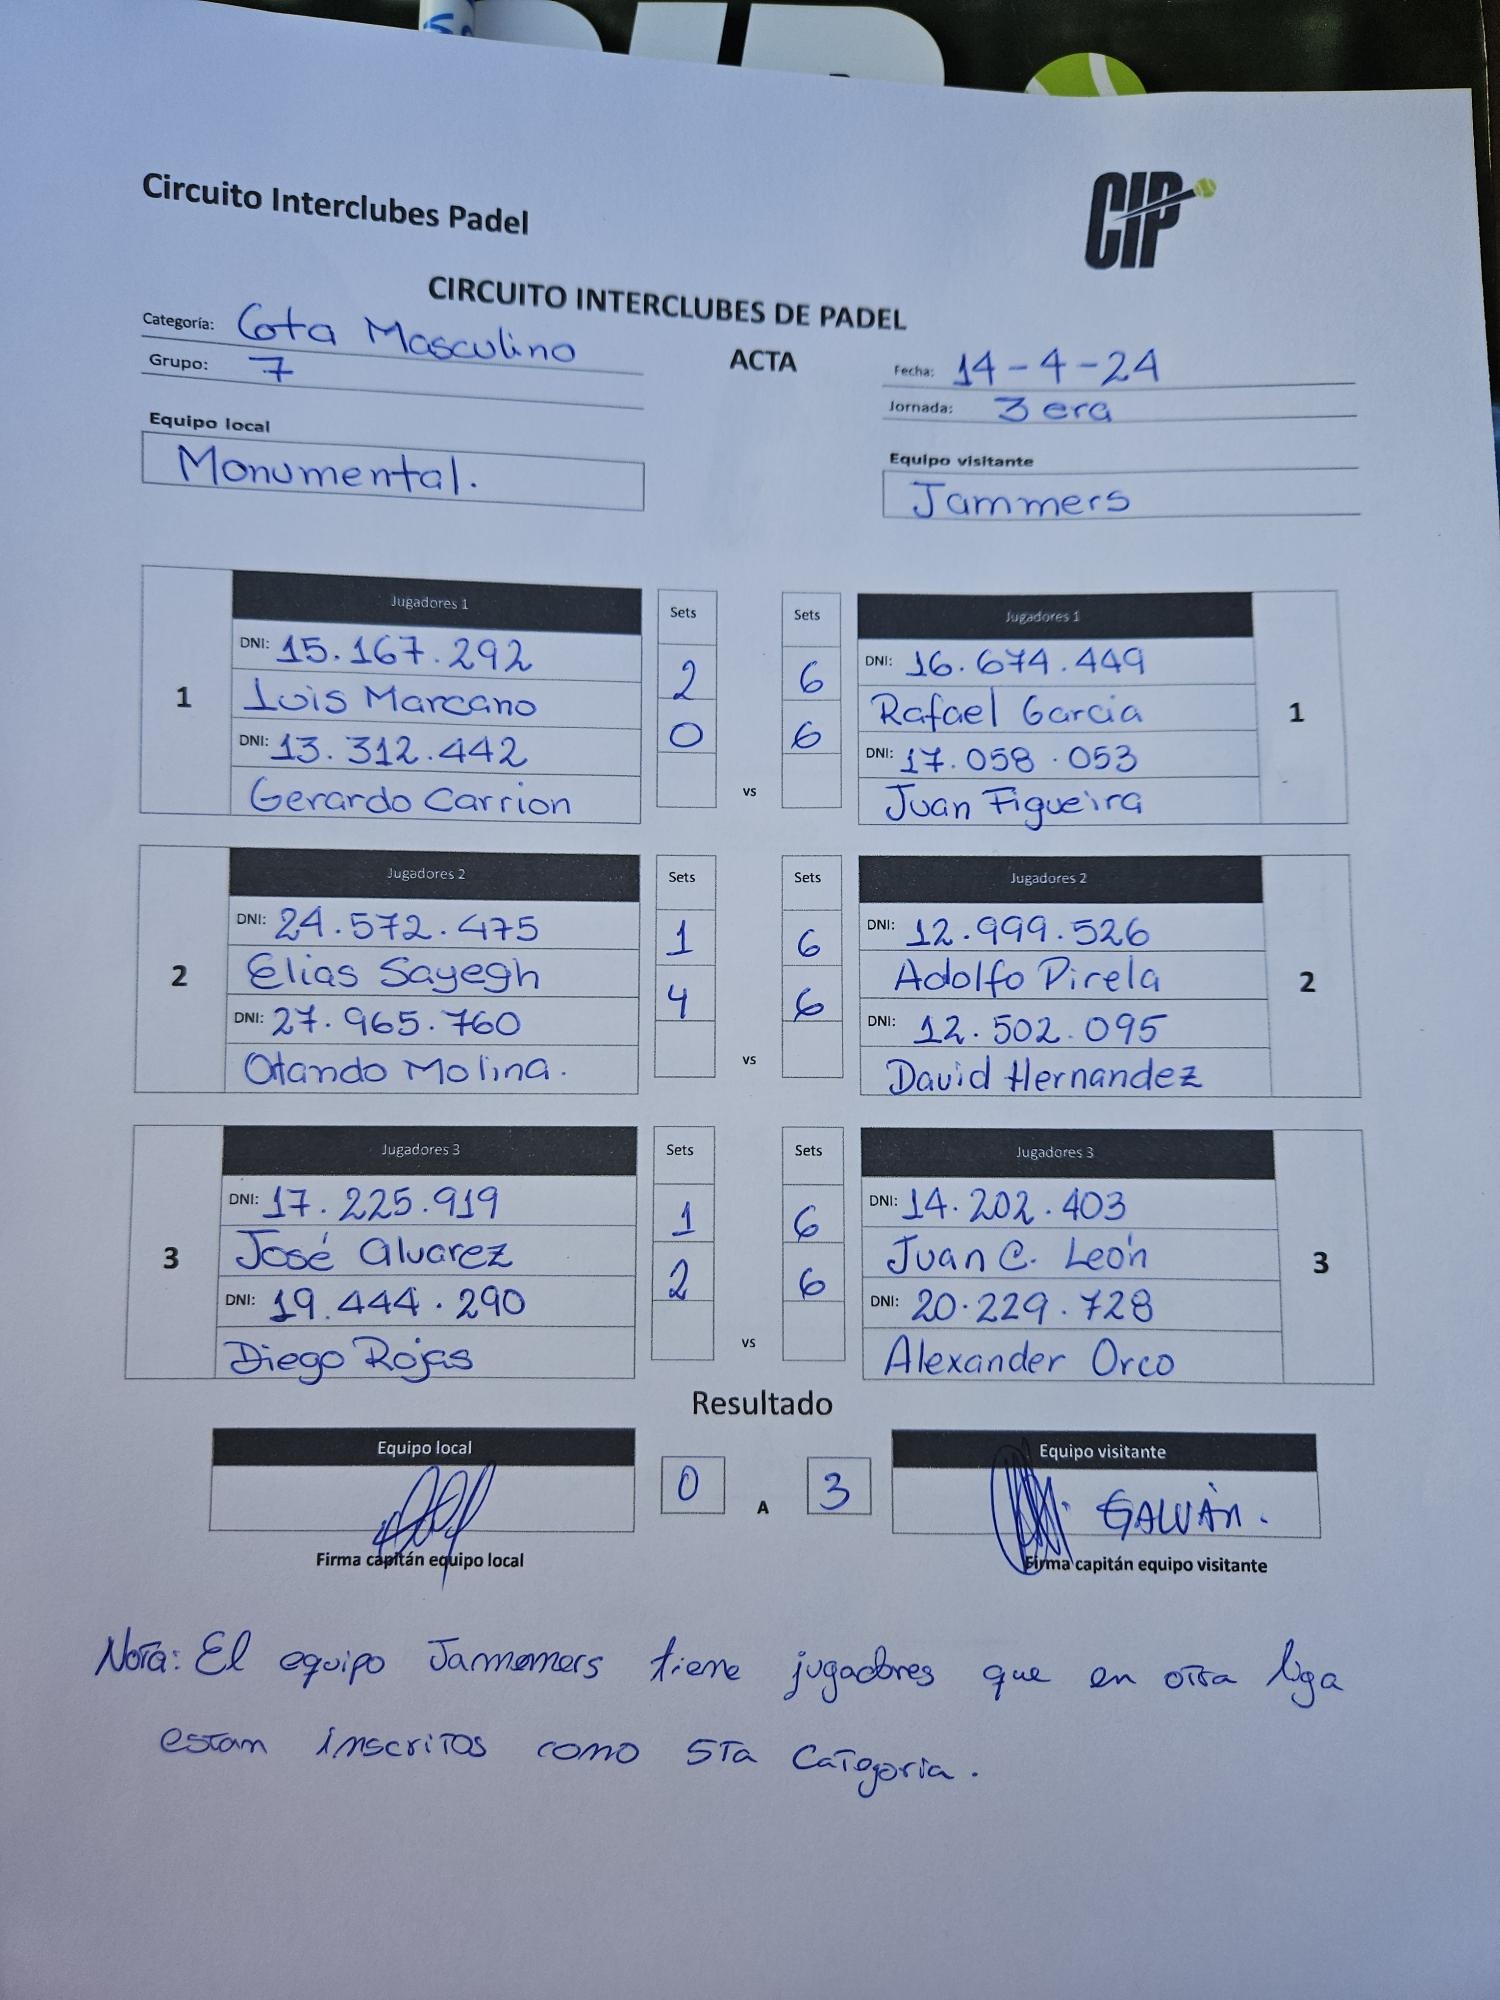 Circuito Interclubes Padel
CIP
CIRCUITO INTERCLUBES DE PADEL
Categoría: 6ta Masculino
ACTA
Grupo: 7
Fecha: 14-4-24
Jornada: 3era
Equipo local
Monumental.
Equipo visitante
Jammers
1
Jugadores 1
DNI: 15.167.292
Luis Marcano
DNI: 13.312.442
Gerardo Carrion
Sets
2
0
vs
Sets
6
6
Jugadores 1
DNI: 16.674.449
Rafael Garcia
DNI: 17.058.053
Juan Figueira
1
2
Jugadores 2
DNI: 24.572.475
Elias Sayegh
DNI: 27.965.760
Molina.
Sets
1
4
vs
Sets
6
6
Jugadores 2
DNI: 12.999.526
Adolfo Pirela
DNI: 12.502.095
David Hernandez
2
3
Jugadores 3
DNI: 17.225.919
José Alvarez
DNI: 19.444.290
Diego Rojas
Sets
1
2
vs
Sets
6
6
Jugadores 3
DNI: 14.202.403
Juan C. León
DNI: 20.229.728
Alexander Orco
3
Resultado
Equipo local
0
A
3
Equipo visitante
GALVÁN.
Firma capitán equipo local
Firma capitán equipo visitante
Nota: El equipo Jammemers tiene jugadores que en otra liga
estam inscritos como 5Ta Categoria.